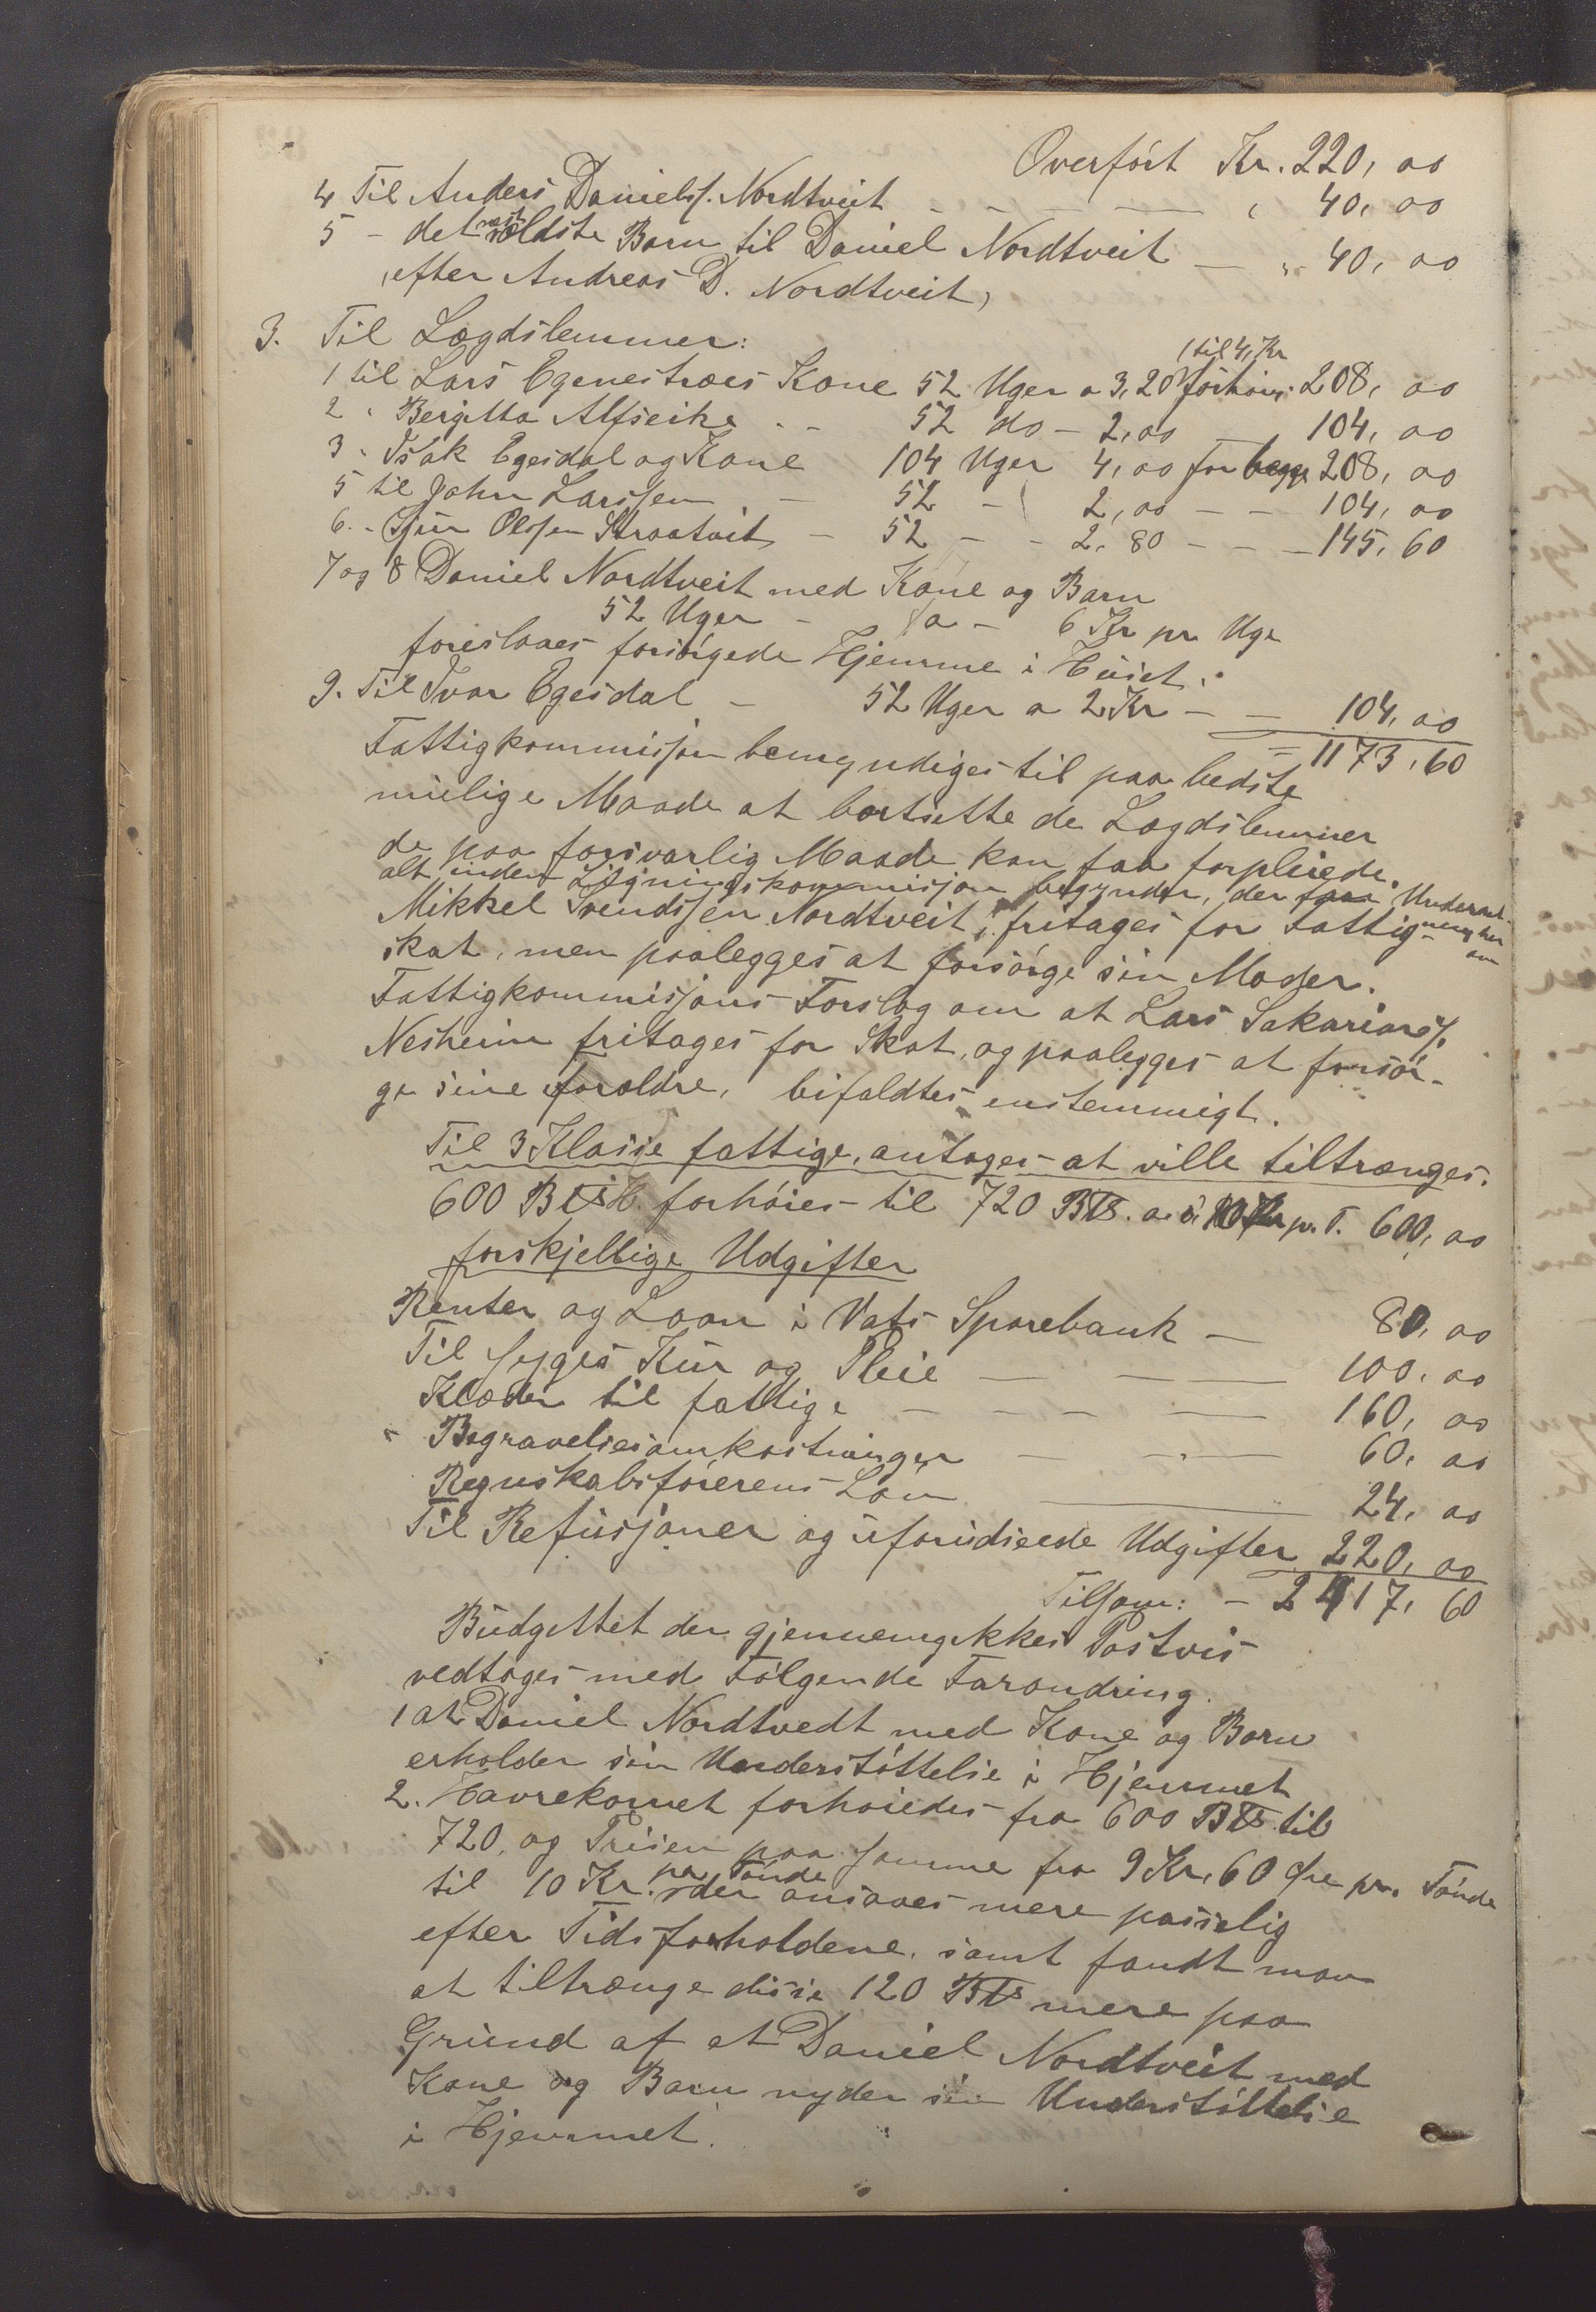 Overført Kr. 220, 00
4 Til Anders Danielss. Nordtveit - - - - " 40, 00
5 - det næst ældste Barn til Daniel Nordtveit - " 40, 00
(efter Andreas D. Nordtveit)
3. Til Lægdslemmer:
1 til Lars Egenestræes Kone 52 Uger a 3,20 forhøies (til 4, Kr 208, 00
2 " Bergitta Alfseike - - 52 do - 2,00 104, 00
3 " Isak Egesdal og Kone 104 Uger 4,00 for begge 208, 00
5 til John Larssen - 52 - 2,00 - - 104, 00
6. - Sjur Olssen Straatveit - 52 - - 2. 80 - - - 145, 60
7 og 8 Daniel Nordtveit med Kone og Barn
52 Uger - a - 6 Kr pr Uge
foreslaaes forsørgede Hjemme i Huset.
9. Til Ivar Egesdal - 52 Uger a 2 Kr - - 104, 00
= 1173, 60
Fattigkommissjon bemyndiges til paa bedste
mulige Maade at bortsette de Lægdslemmer
de paa forsvarlig Maade kan faa forpleiede.
alt inden Ligningskommisjon begynder, der faar Underret-
ning her
om
Mikkel Svendssen Nordtveit, fritages for Fattig-
skat, men paalegges at forsørge sin Moder.
Fattigkommisjons Forslag om at Lars Sakariass.
Nesheim fritages for Skat, og paalegges at forsør-
ge sine foreldre, bifaldtes enstemmigt.
Til 3 Klasse fattige, antages at ville tiltrænges.
600 B forhøies til 720 B a 10 Kr pr. T. 600, 00
forskjellige Udgifter
Renter og Laan i Vats Sparebank - 80, 00
Til syges Kur og Pleie - - - 100, 00
Klæder til fattige - - - - 160, 00
" Begravelsesomkostninger - - - 60, 00
Regnskabsførerens Løn 24, 00
Til Refusjoner og uforudseede Udgifter 220, 00
Tilsam: - 2417, 60
Budgettet der gjennemgikkes Postvis
vedtages med Følgende Forandring.
1 at Daniel Nordtvedt med Kone og Barn
erholder sin Understøttelse i Hjemmet
2. Havrekornet forhøiedes fra 600 B til
720, og Prisen paa samme fra 9 Kr. 60 Øre pr. Tønde
til 10 Kr. pr Tønde der ansaaes mere passelig
efter Tidsforholdene, samt fandt man
at tiltrænge disse 120 B mere paa
Grund af at Daniel Nordtveit med
Kone og Barn nyder sin Understøttelse
i Hjemmet.